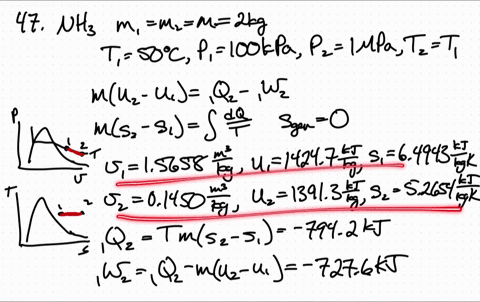 47. NH₃ m₁=m₂=m=2kg
T₁=50°C, P₁=100kPa, P₂=1MPa, T₂=T₁
m(u₂-u₁)=₁Q₂-₁W₂
m(s₂-s₁)=∫dQ/T Sgen=0
P 1 2 T v
υ₁=1.5658 m³/kg, u₁=1424.7 kJ/kg, s₁=6.4943 kJ/kgK
υ₂=0.1450 m³/kg, u₂=1391.3 kJ/kg, s₂=5.2654 kJ/kgK
T 1 2 s
₁Q₂=Tm(s₂-s₁)=-794.2kJ
₁W₂=₁Q₂-m(u₂-u₁)=-727.6kJ